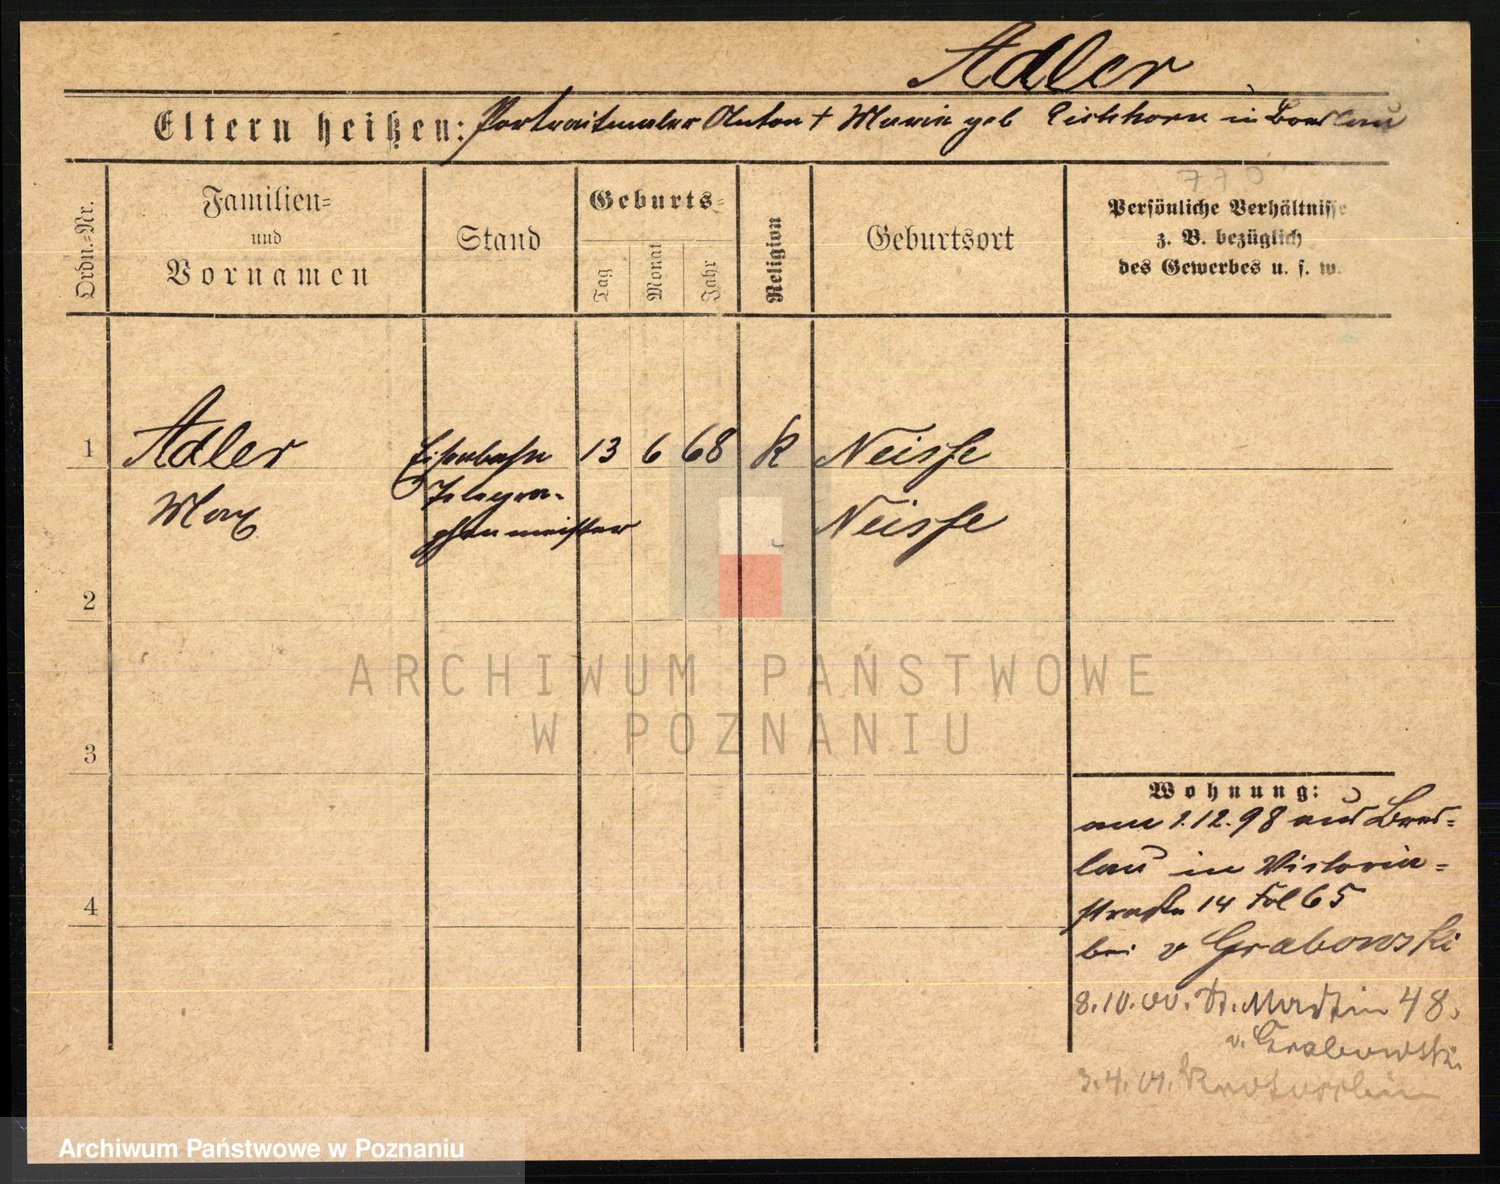 Adler
Eltern heißen: Portraitmaler Anton † Marie geb Eichhorn in Breslau
770
Ordn.-Nr.
Familien- und Vornamen
Stand
Geburts-
Tag
Monat
Jahr
Religion
Geburtsort
Persönliche Verhältnisse
z. B. bezüglich
des Gewerbes u. s. w.
1 Adler Eisenbahn 13 6 68 K Neisse
Max Telegra-
phenmeister Neisse
2
3
4
ARCHIWUM PAŃSTWOWE
W POZNANIU
Wohnung:
am 1.12.98 aus Bres-
lau in Victoria-
straße 14 Fol 65
bei v Grabowski
8.10.00. St. Martin 48.
v. Grabowski.
3.4.01. Krotoschin
Archiwum Państwowe w Poznaniu